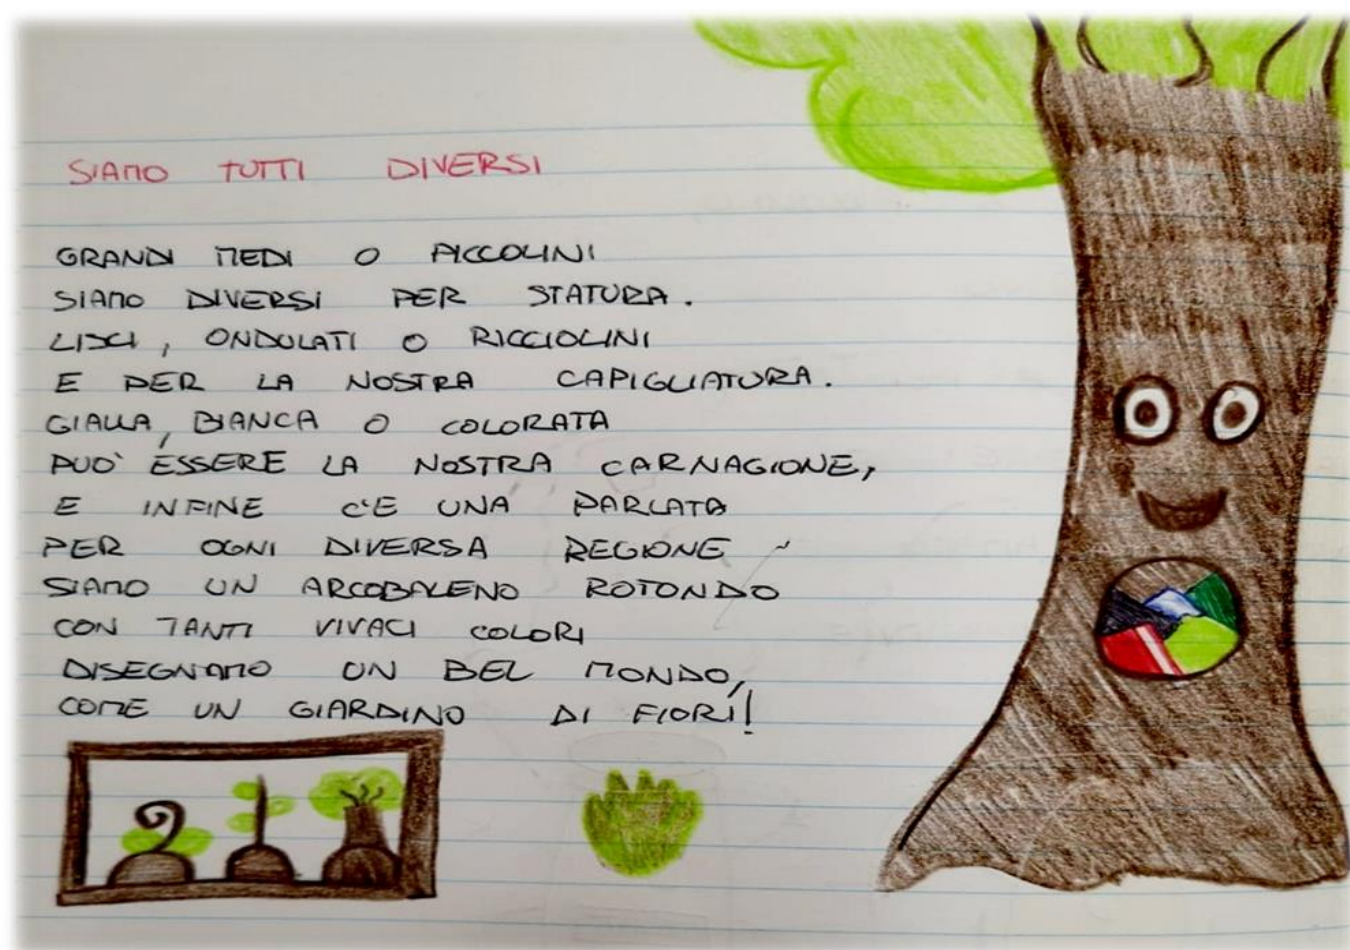 SIAMO TUTTI DIVERSI
GRANDI MEDI O PICCOLINI
SIAMO DIVERSI PER STATURA.
LISCI, ONDULATI O RICCIOLINI
E PER LA NOSTRA CAPIGLIATURA.
GIALLA, BIANCA O COLORATA
PUO' ESSERE LA NOSTRA CARNAGIONE,
E INFINE C'E UNA PARLATA
PER OGNI DIVERSA REGIONE
SIAMO UN ARCOBALENO ROTONDO
CON TANTI VIVACI COLORI
DISEGNAMO UN BEL MONDO,
COME UN GIARDINO DI FIORI!